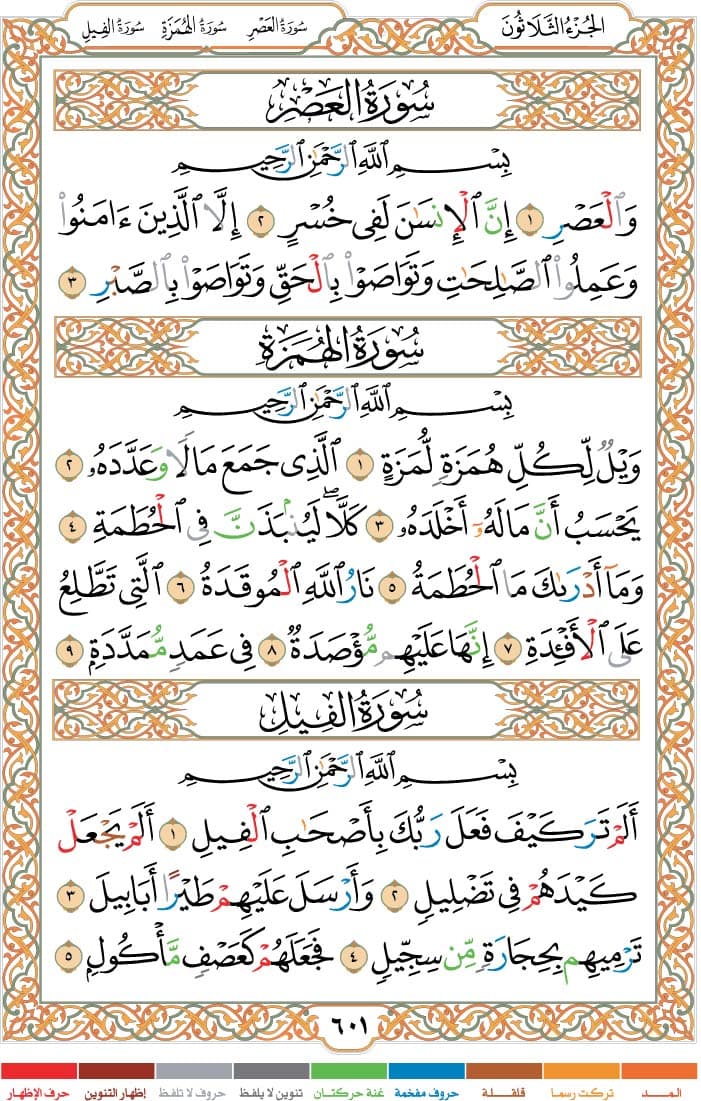 الجُزْءُ الثَّلَاثُونَ سُورَةُ العَصْرِ سُورَةُ الهُمَزَةِ سُورَةُ الفِيلِ
سُورَةُ العَصْرِ
بِسْمِ ٱللَّهِ ٱلرَّحْمَٰنِ ٱلرَّحِيمِ
وَٱلْعَصْرِ ١ إِنَّ ٱلْإِنسَٰنَ لَفِى خُسْرٍ ٢ إِلَّا ٱلَّذِينَ ءَامَنُوا۟
وَعَمِلُوا۟ ٱلصَّٰلِحَٰتِ وَتَوَاصَوْا۟ بِٱلْحَقِّ وَتَوَاصَوْا۟ بِٱلصَّبْرِ ٣
سُورَةُ الهُمَزَةِ
بِسْمِ ٱللَّهِ ٱلرَّحْمَٰنِ ٱلرَّحِيمِ
وَيْلٌ لِّكُلِّ هُمَزَةٍ لُّمَزَةٍ ١ ٱلَّذِى جَمَعَ مَالًا وَعَدَّدَهُۥ ٢
يَحْسَبُ أَنَّ مَالَهُۥٓ أَخْلَدَهُۥ ٣ كَلَّا ۖ لَيُنۢبَذَنَّ فِى ٱلْحُطَمَةِ ٤
وَمَآ أَدْرَىٰكَ مَا ٱلْحُطَمَةُ ٥ نَارُ ٱللَّهِ ٱلْمُوقَدَةُ ٦ ٱلَّتِى تَطَّلِعُ
عَلَى ٱلْأَفْـِٔدَةِ ٧ إِنَّهَا عَلَيْهِم مُّؤْصَدَةٌ ٨ فِى عَمَدٍ مُّمَدَّدَةٍۭ ٩
سُورَةُ الفِيلِ
بِسْمِ ٱللَّهِ ٱلرَّحْمَٰنِ ٱلرَّحِيمِ
أَلَمْ تَرَ كَيْفَ فَعَلَ رَبُّكَ بِأَصْحَٰبِ ٱلْفِيلِ ١ أَلَمْ يَجْعَلْ
كَيْدَهُمْ فِى تَضْلِيلٍ ٢ وَأَرْسَلَ عَلَيْهِمْ طَيْرًا أَبَابِيلَ ٣
تَرْمِيهِم بِحِجَارَةٍ مِّن سِجِّيلٍ ٤ فَجَعَلَهُمْ كَعَصْفٍ مَّأْكُولٍۭ ٥
٦٠١
المـــد تركت رسما قلقـــلة حروف مفخمة غنة حركتان تنوين لا يلفظ حروف لا تلفظ إظهار التنوين حرف الإظهار